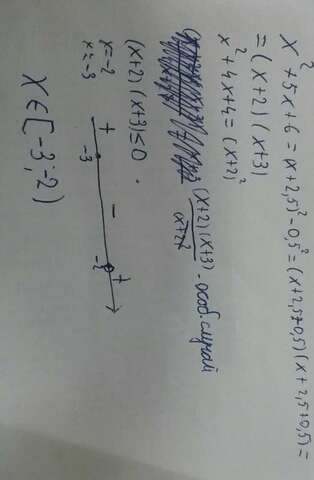 x² + 5x + 6 = (x + 2,5)² - 0,5² = (x + 2,5 - 0,5)(x + 2,5 + 0,5) =
= (x+2)(x+3)
x² + 4x + 4 = (x+2)²
(x+2)(x+3) - особ. случай
(x+2)²
(x+2)(x+3) ≤ 0 .
x = -2
x = -3
+ - +
-3 -2
x ∈ [-3; -2)